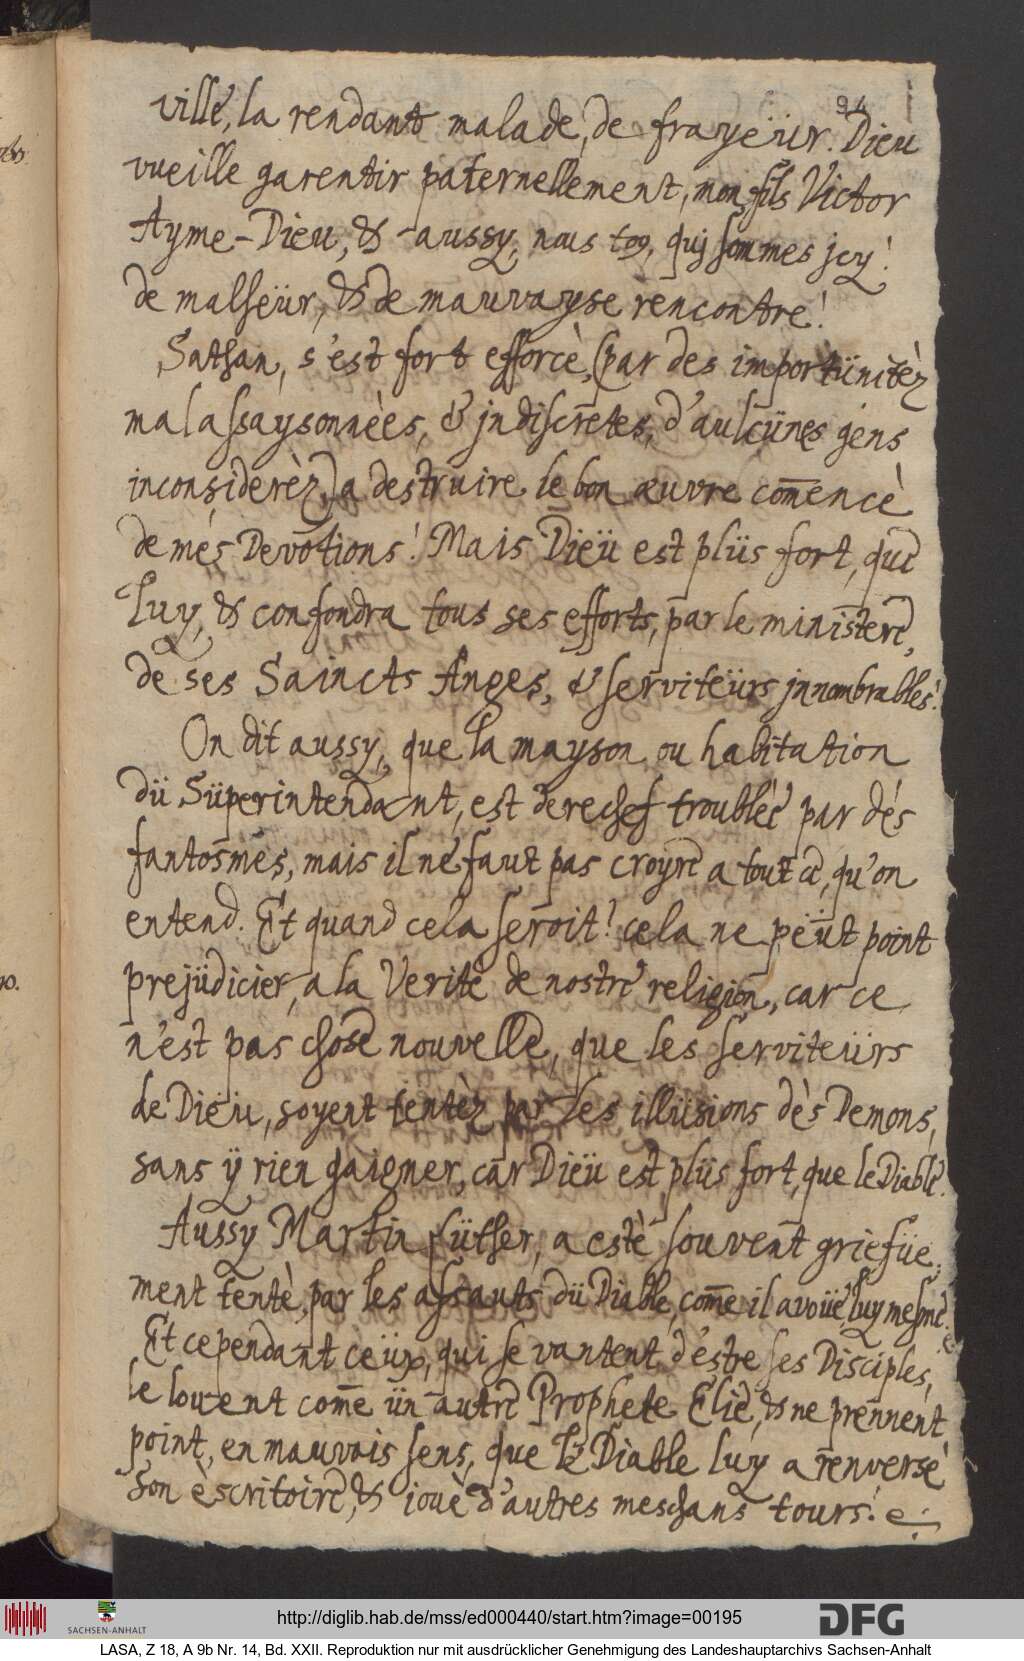 94
ville, la rendant malade, de frayeür. Dieu
vueille garentir paternellement, mon fils Victor
Ayme-Dieu, & aussy, nous to9, quj sommes jcy!
de malheür, & de mauvayse rencontre!
Sathan, s'est fort efforcè, (par des importünitèz
malassaysonnèes, & jndiscretes, d'aulcünes gens
inconsiderèz) a destruire le bon œuvre com̄encè
de mes Devotions! Mais Dieü est plüs fort, que
Luy, & confondra tous ses efforts, par le ministere,
de ses Saincts Anges, & serviteürs jnnombrables!
On dit aussy, que la mayson ou habitation
dü Süperintendant, est derechef troublée par des
fantosmes, mais il ne faut pas croyre a tout ce, qu'on
entend. Et quand cela seroit! cela ne peüt point
prejüdicier, a la Veritè de nostre religion, car ce
n'est pas chose nouvelle, que les serviteürs
de Dieu, soyent tentèz par les illüsions dès Demons,
sans ÿ rien gaigner, car Dieü est plüs fort, que le Diable.
Aussy Martin Lüther, a estè souvent griefüe,
ment tentè, par les assauts dü Diable, com̄e il avoüe, luy mesme.
Et cependant ceüx, qui se vantent d'estre ses Disciples,
le louent com̄e ün autre Prophete Elie, & ne prennent
point, en mauvais sens, que le Diable luy a renversè
son èscritoire, & jouè d'autres meschans tours!
90.
http://diglib.hab.de/mss/ed000440/start.htm?image=00195
SACHSEN-ANHALT
DFG
LASA, Z 18, A 9b Nr. 14, Bd. XXII. Reproduktion nur mit ausdrücklicher Genehmigung des Landeshauptarchivs Sachsen-Anhalt